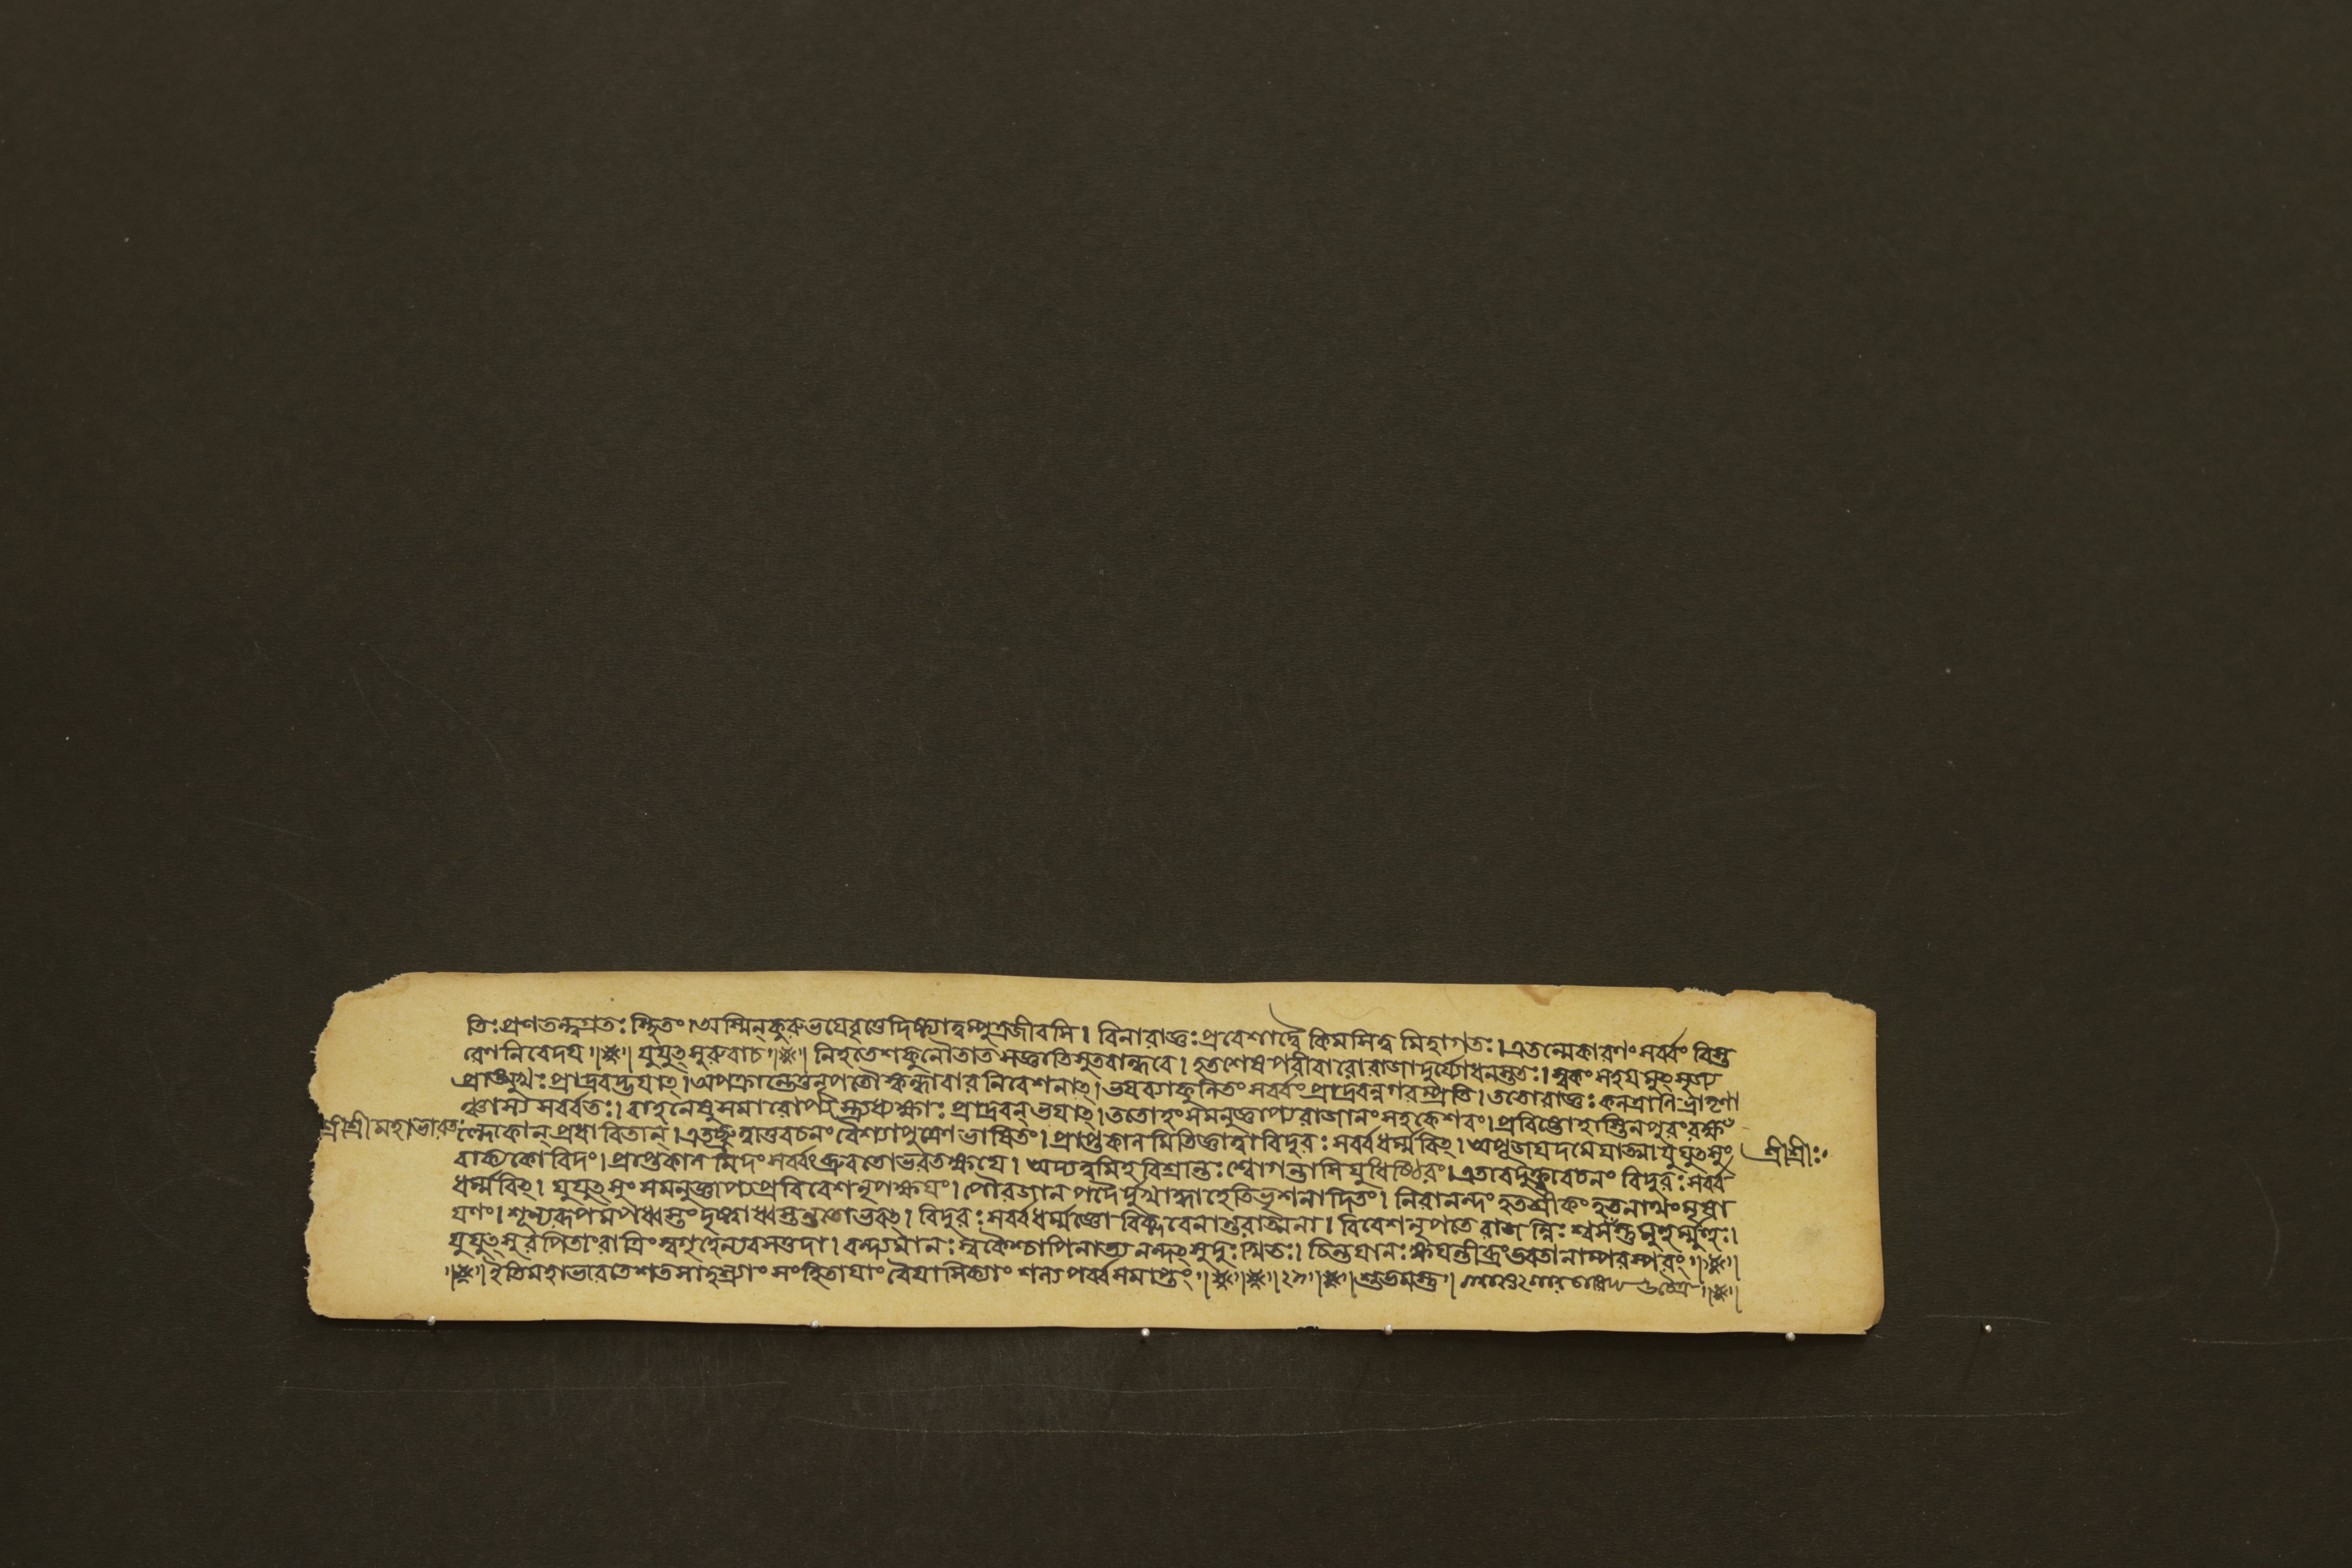 তিঃ প্রণতন্ত্বগ্রতঃ স্থিতং। অস্মিন্ কুরুভযে বৃত্তে দিষ্ট্যাত্বম্পুত্রজীবসি। বিনা রাজ্ঞঃ প্রবেশাদ্বৈ কিমসিত্ব মিহাগতঃ। এতন্মেকারণং সর্ব্বং বিস্ত
রেণ নিবেদয॥ যুযুৎসুরুবাচ॥ নিহতে শকুনৌ তাত সজ্ঞাতিসুতবান্ধবে। হতশেষপরীবারো রাজা দুর্য্যোধনস্ততঃ। স্বকং সহযমুৎসৃজ্য
প্রাঙ্মুখঃ প্রাদ্রবদ্ভযাৎ। অপক্রান্তেতু নৃপতৌ স্কন্ধাবারনিবেশনাৎ। ভযব্যাকুলিতং সর্ব্বং প্রাদ্রবন্নগরম্প্রতি। ততো রাজ্ঞঃ কলত্রাণি ভ্রাতৃণা
ঞ্চাস্য সর্ব্বতঃ। বাহনেষু সমারোপ্য স্ত্র্যধ্যক্ষাঃ প্রাদ্রবন্ ভযাৎ। ততোহং সমনুজ্ঞাপ্য রাজানং সহকেশবং। প্রবিষ্টো হাস্তিনপুরং রক্ষঁ
শ্রীশ্রীমহাভারত
ল্লোকান্ প্রধাবিতান্। এতচ্ছ্রুত্বাতু বচনং বৈশ্যাপুত্রেণ ভাষিতং। প্রাপ্তকালমিতি জ্ঞাত্বা বিদুরঃ সর্ব্বধর্ম্মবিৎ। অপূজযদমেযাত্মা যুযুৎসুং
শ্রীশ্রীঃ
বাক্যকোবিদং। প্রাপ্তকালমিদং সর্ব্বং ব্রুবতো ভরতক্ষযে। অদ্যত্বমিহ বিশ্রান্তঃ শ্বোগন্তাসি যুধিষ্ঠিরং। এতাবদুক্ত্বা বচনং বিদুরঃ সর্ব্ব
ধর্ম্মবিৎ। যুযুৎসুং সমনুজ্ঞাপ্য প্রবিবেশ নৃপক্ষযং। পৌরজানপদৈর্দুঃখাদ্ধাহেতি ভৃশনাদিতং। নিরানন্দং হতশ্রীকং হৃতনাথং
শূন্যরূপমপধ্বস্তং বিদুরঃ সর্ব্বধর্ম্মজ্ঞো বিক্লবেনান্তরাত্মনা। বিবেশ নৃপতে রাজ শ্বসংস্তু মুহুর্ম্মুহুঃ।
যুযুৎসুরপি তাং রাত্রিং স্বগৃহে ন্যবসত্তদা। বন্দ্যমানঃ স্বকৈশ্চাপি নাভ্যনন্দৎ সুদুঃখিতঃ। চিন্তযানঃ ক্ষযন্তীব্রং ভরতানাম্পরস্পরং॥
॥ ইতি মহাভারতে শতসাহস্র্যাং সংহিতাযাং বৈযাসিক্যাং শল্যপর্ব্ব সমাপ্তং॥ শুভমস্তু॥